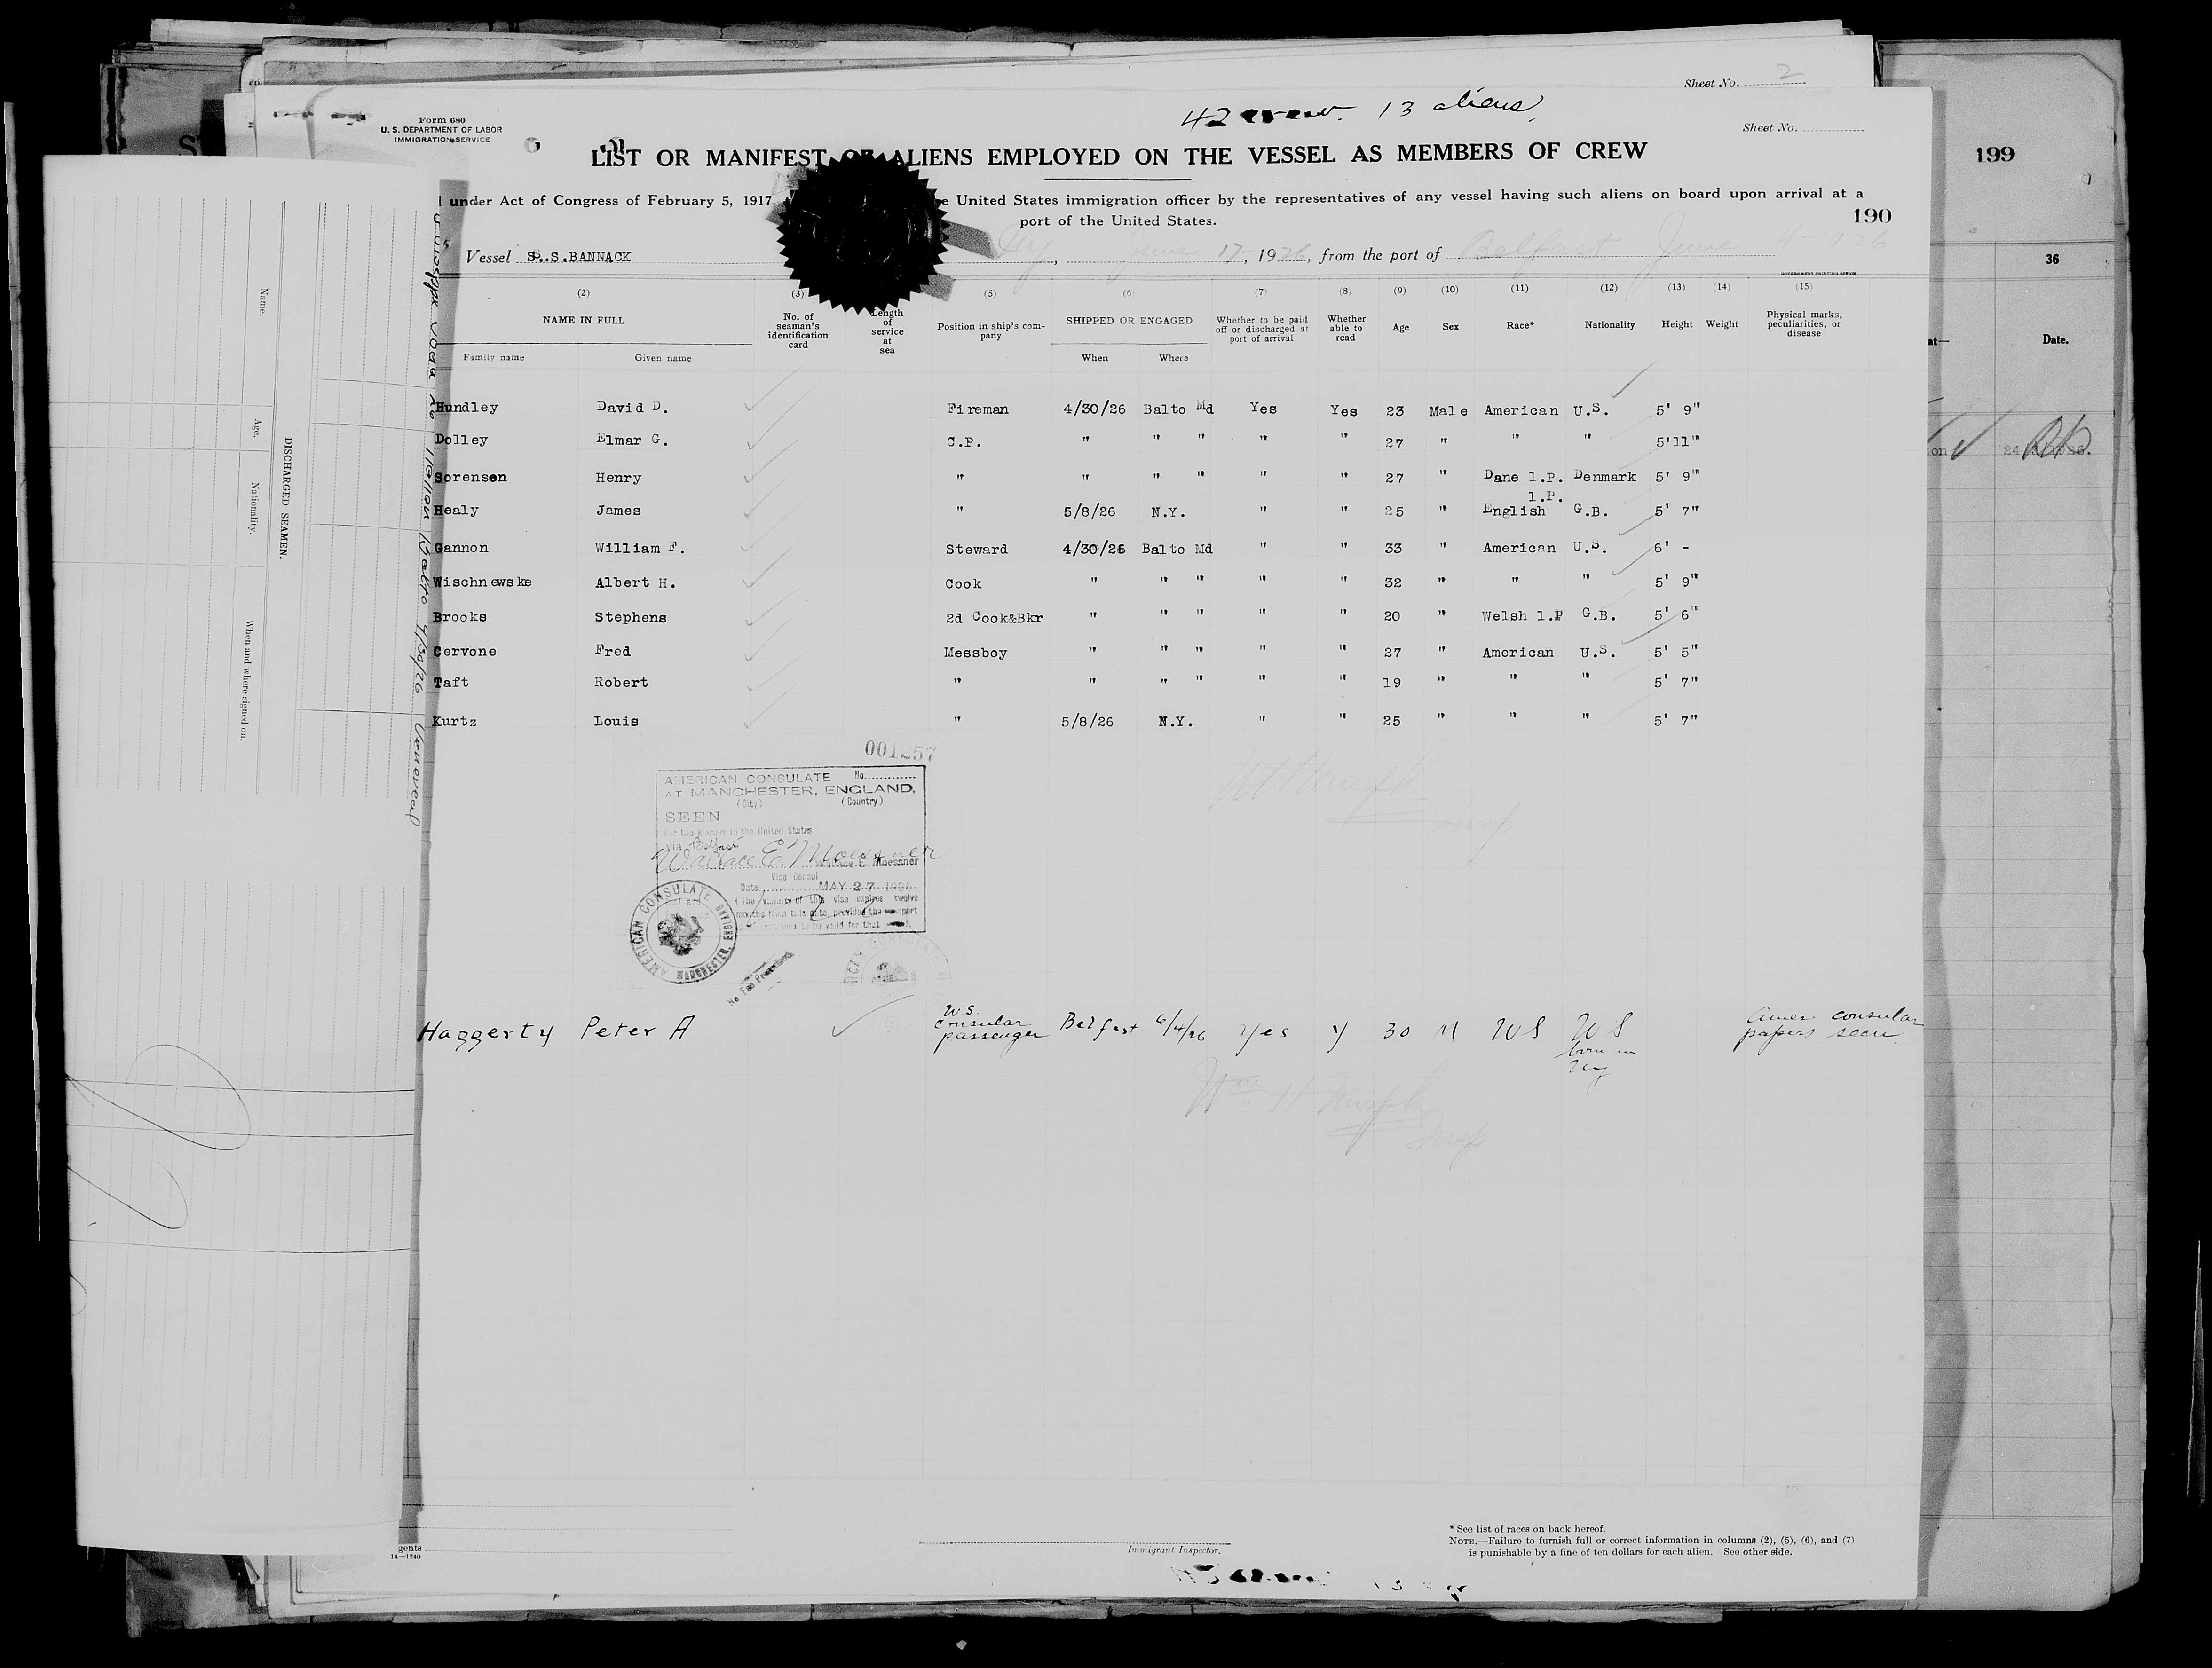 Sheet No. 2
42 crew. 13 aliens,
Form 680
U. S. DEPARTMENT OF LABOR
IMMIGRATION SERVICE
Sheet No.
LIST OR MANIFEST OF ALIENS EMPLOYED ON THE VESSEL AS MEMBERS OF CREW
199
under Act of Congress of February 5, 1917
e United States immigration officer by the representatives of any vessel having such aliens on board upon arrival at a
port of the United States.
190
Vessel S.S.BANNACK
June 17, 1926, from the port of Belfast June 4-1926
GOVERNMENT PRINTING OFFICE
36
(2) (3) (5) (6) (7) (8) (9) (10) (11) (12) (13) (14) (15)
NAME IN FULL
Family name Given name
No. of seaman's identification card
Length of service at sea
Position in ship's company
SHIPPED OR ENGAGED
When Where
Whether to be paid off or discharged at port of arrival
Whether able to read
Age Sex Race* Nationality Height Weight
Physical marks, peculiarities, or disease
at—
Date.
Hundley David D. Fireman 4/30/26 Balto Md Yes Yes 23 Male American U.S. 5' 9"
Dolley Elmar G. C.P. " " " " " 27 " " " 5'11"
Sorensen Henry " " " " " " 27 " Dane l.P. Denmark 5' 9"
l.P.
Healy James " 5/8/26 N.Y. " " 25 " English G.B. 5' 7"
Gannon William F. Steward 4/30/26 Balto Md " " 33 " American U.S. 6' -
Wischnewske Albert H. Cook " " " " " 32 " " " 5' 9"
Brooks Stephens 2d Cook&Bkr " " " " " 20 " Welsh l.P G.B. 5' 6"
Cervone Fred Messboy " " " " " 27 " American U.S. 5' 5"
Taft Robert " " " " " " 19 " " " 5' 7"
Kurtz Louis " 5/8/26 N.Y. " " 25 " " " 5' 7"
001257
AMERICAN CONSULATE No.
AT MANCHESTER, ENGLAND,
(City) (Country)
SEEN
For the journey to the United States
via Belfast
Wallace E. Moessner
Wallace E. Moessner
Vice Consul
Date MAY 27 1926
(The validity of this visa expires twelve
months from this date, provided the passport
continues to be valid for that
AMERICAN CONSULATE
MANCHESTER, ENGLAND
No Fee Prescribed
Haggerty Peter A U.S. consular passenger Belfast 6/4/26 Yes y 30 M US US born in Amer consular papers seen.
Wm H Murphy
Insp
DISCHARGED SEAMEN.
Name.
Age.
Nationality.
When and where signed on.
Italian Balto 4/30/26 Venereal
gents
14—1240
Immigrant Inspector.
* See list of races on back hereof.
NOTE.—Failure to furnish full or correct information in columns (2), (5), (6), and (7)
is punishable by a fine of ten dollars for each alien. See other side.